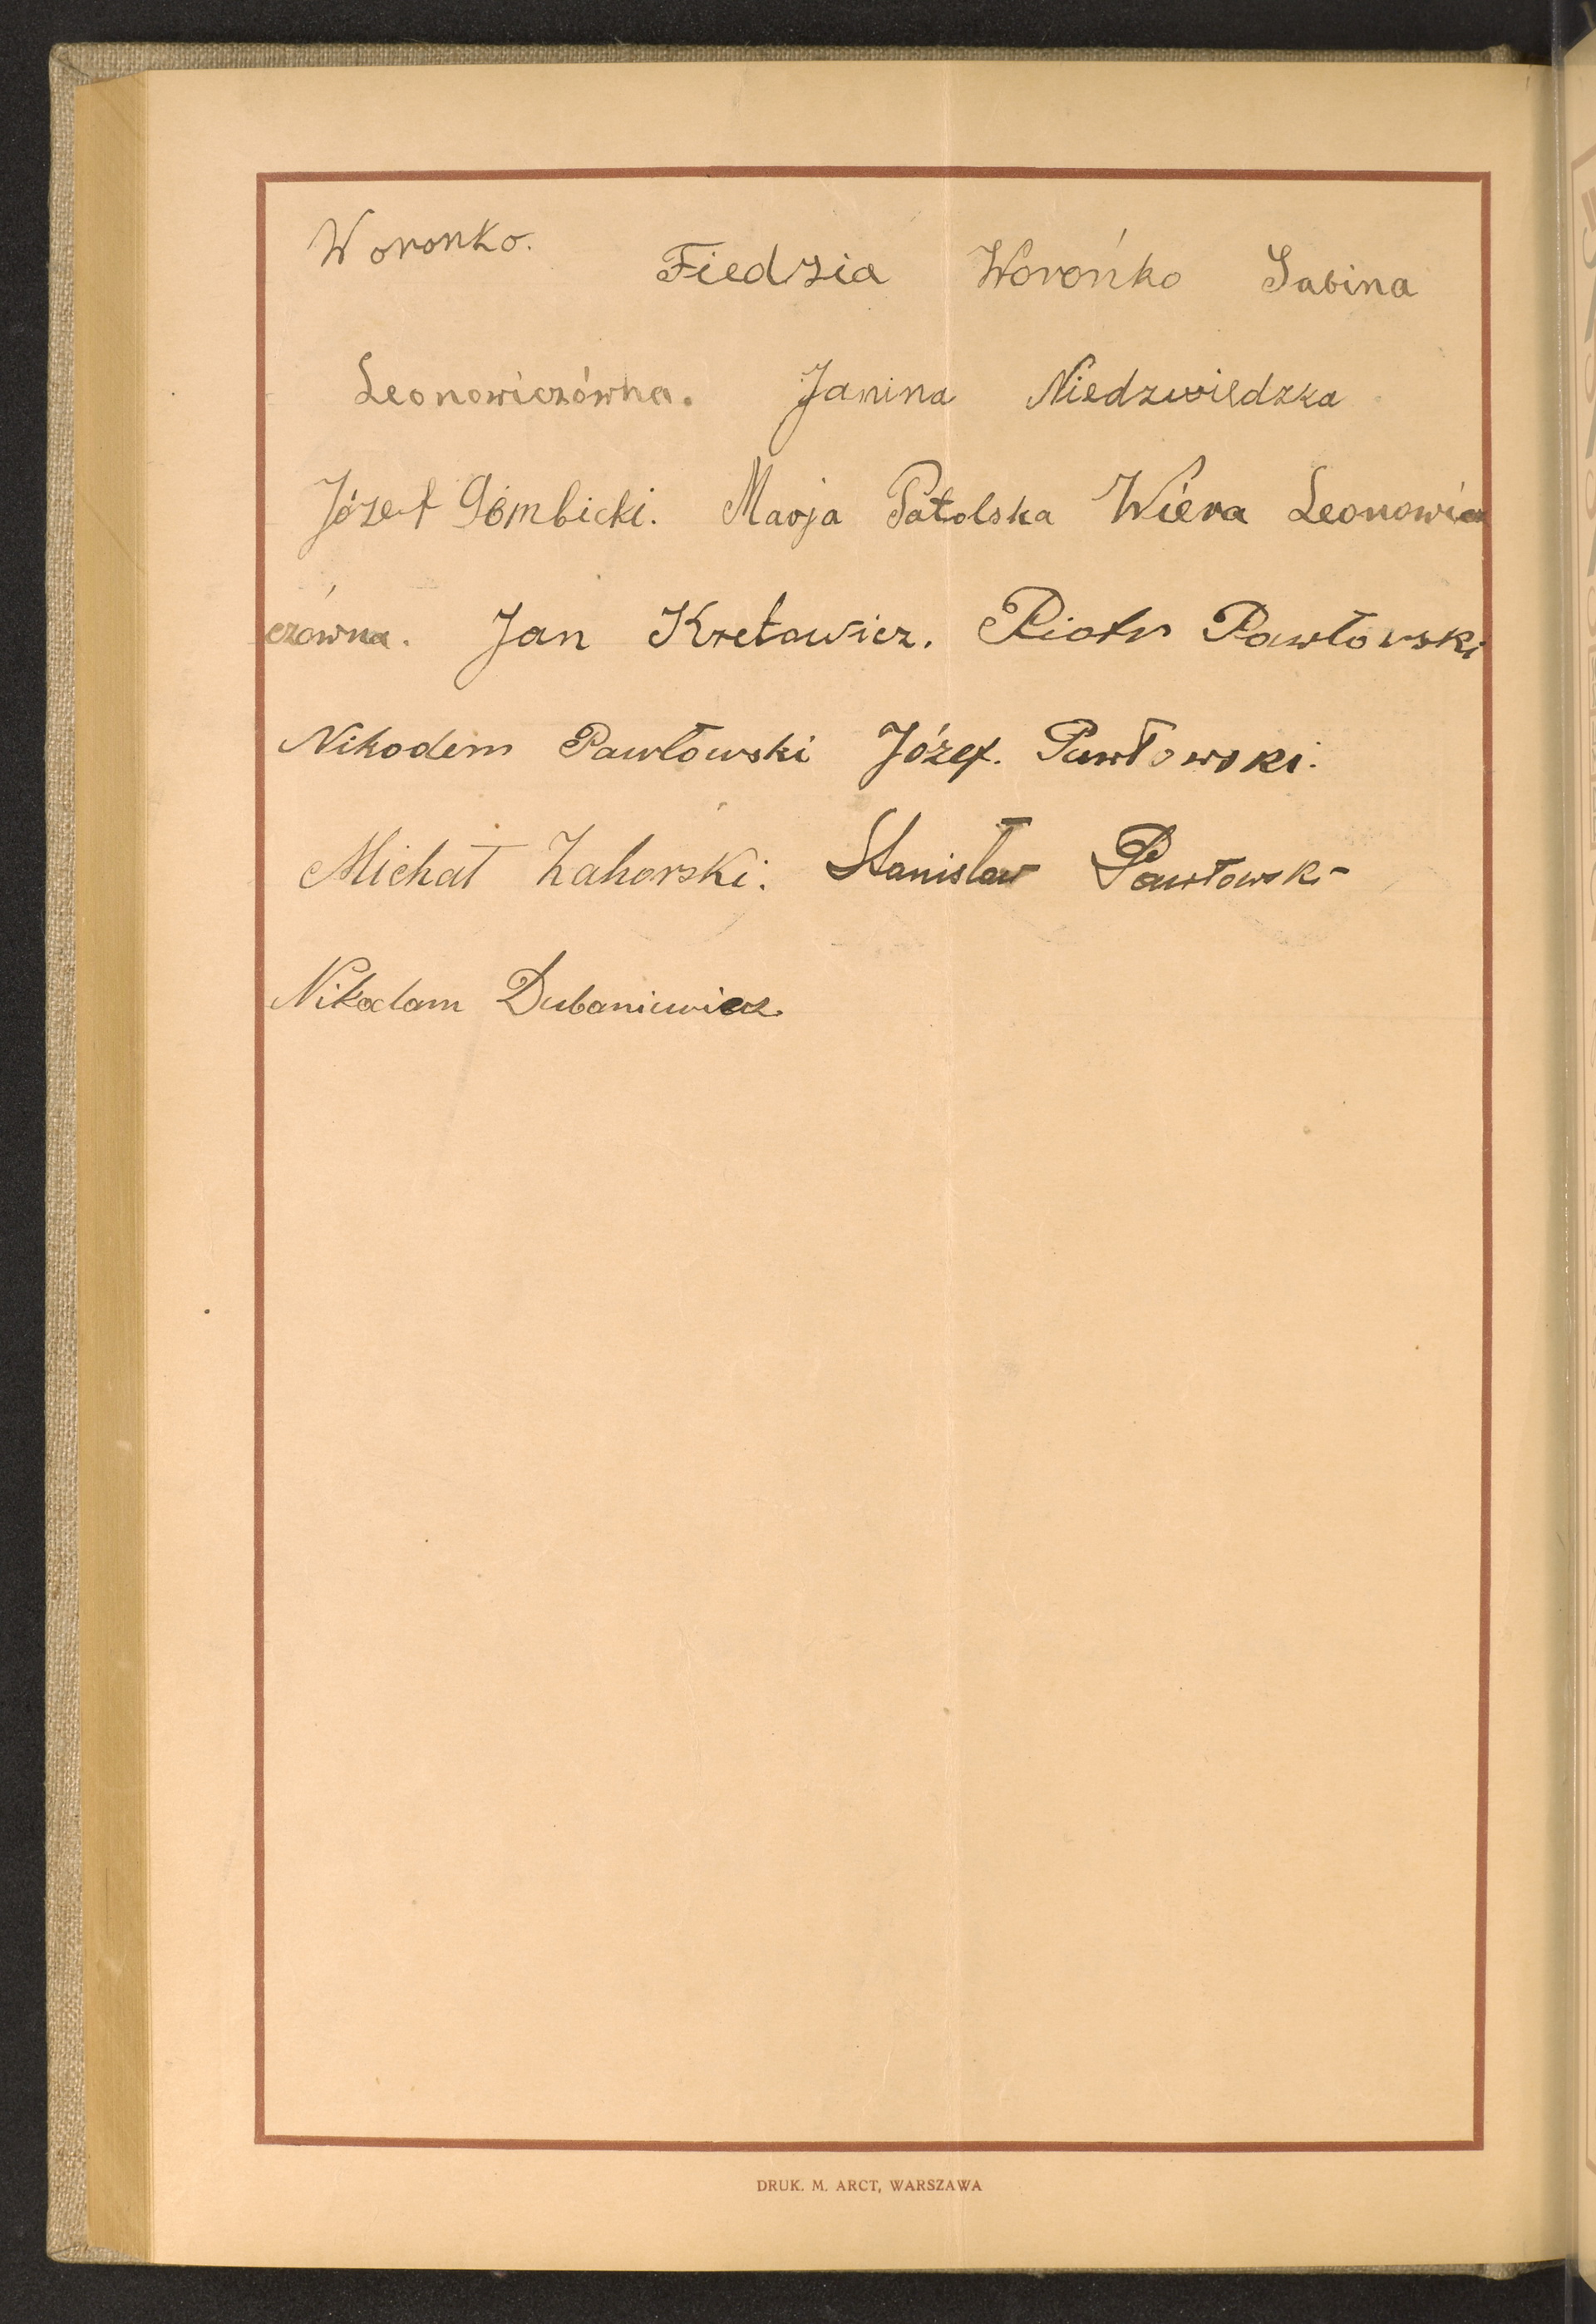 Woronko. Fiedzia Worońko Sabina
Leonowiczówna. Janina Niedzwiedzka
Józef Gómbicki. Marja Patolska Wiera Leonowicz
czówna. Jan Kretowicz. Piotr Pawłowski
Nikodem Pawłowski Józef. Pawłowski.
Michał Zahorski. Stanisław Pawłowski
Nikodam Dubaniewicz.
DRUK. M. ARCT, WARSZAWA